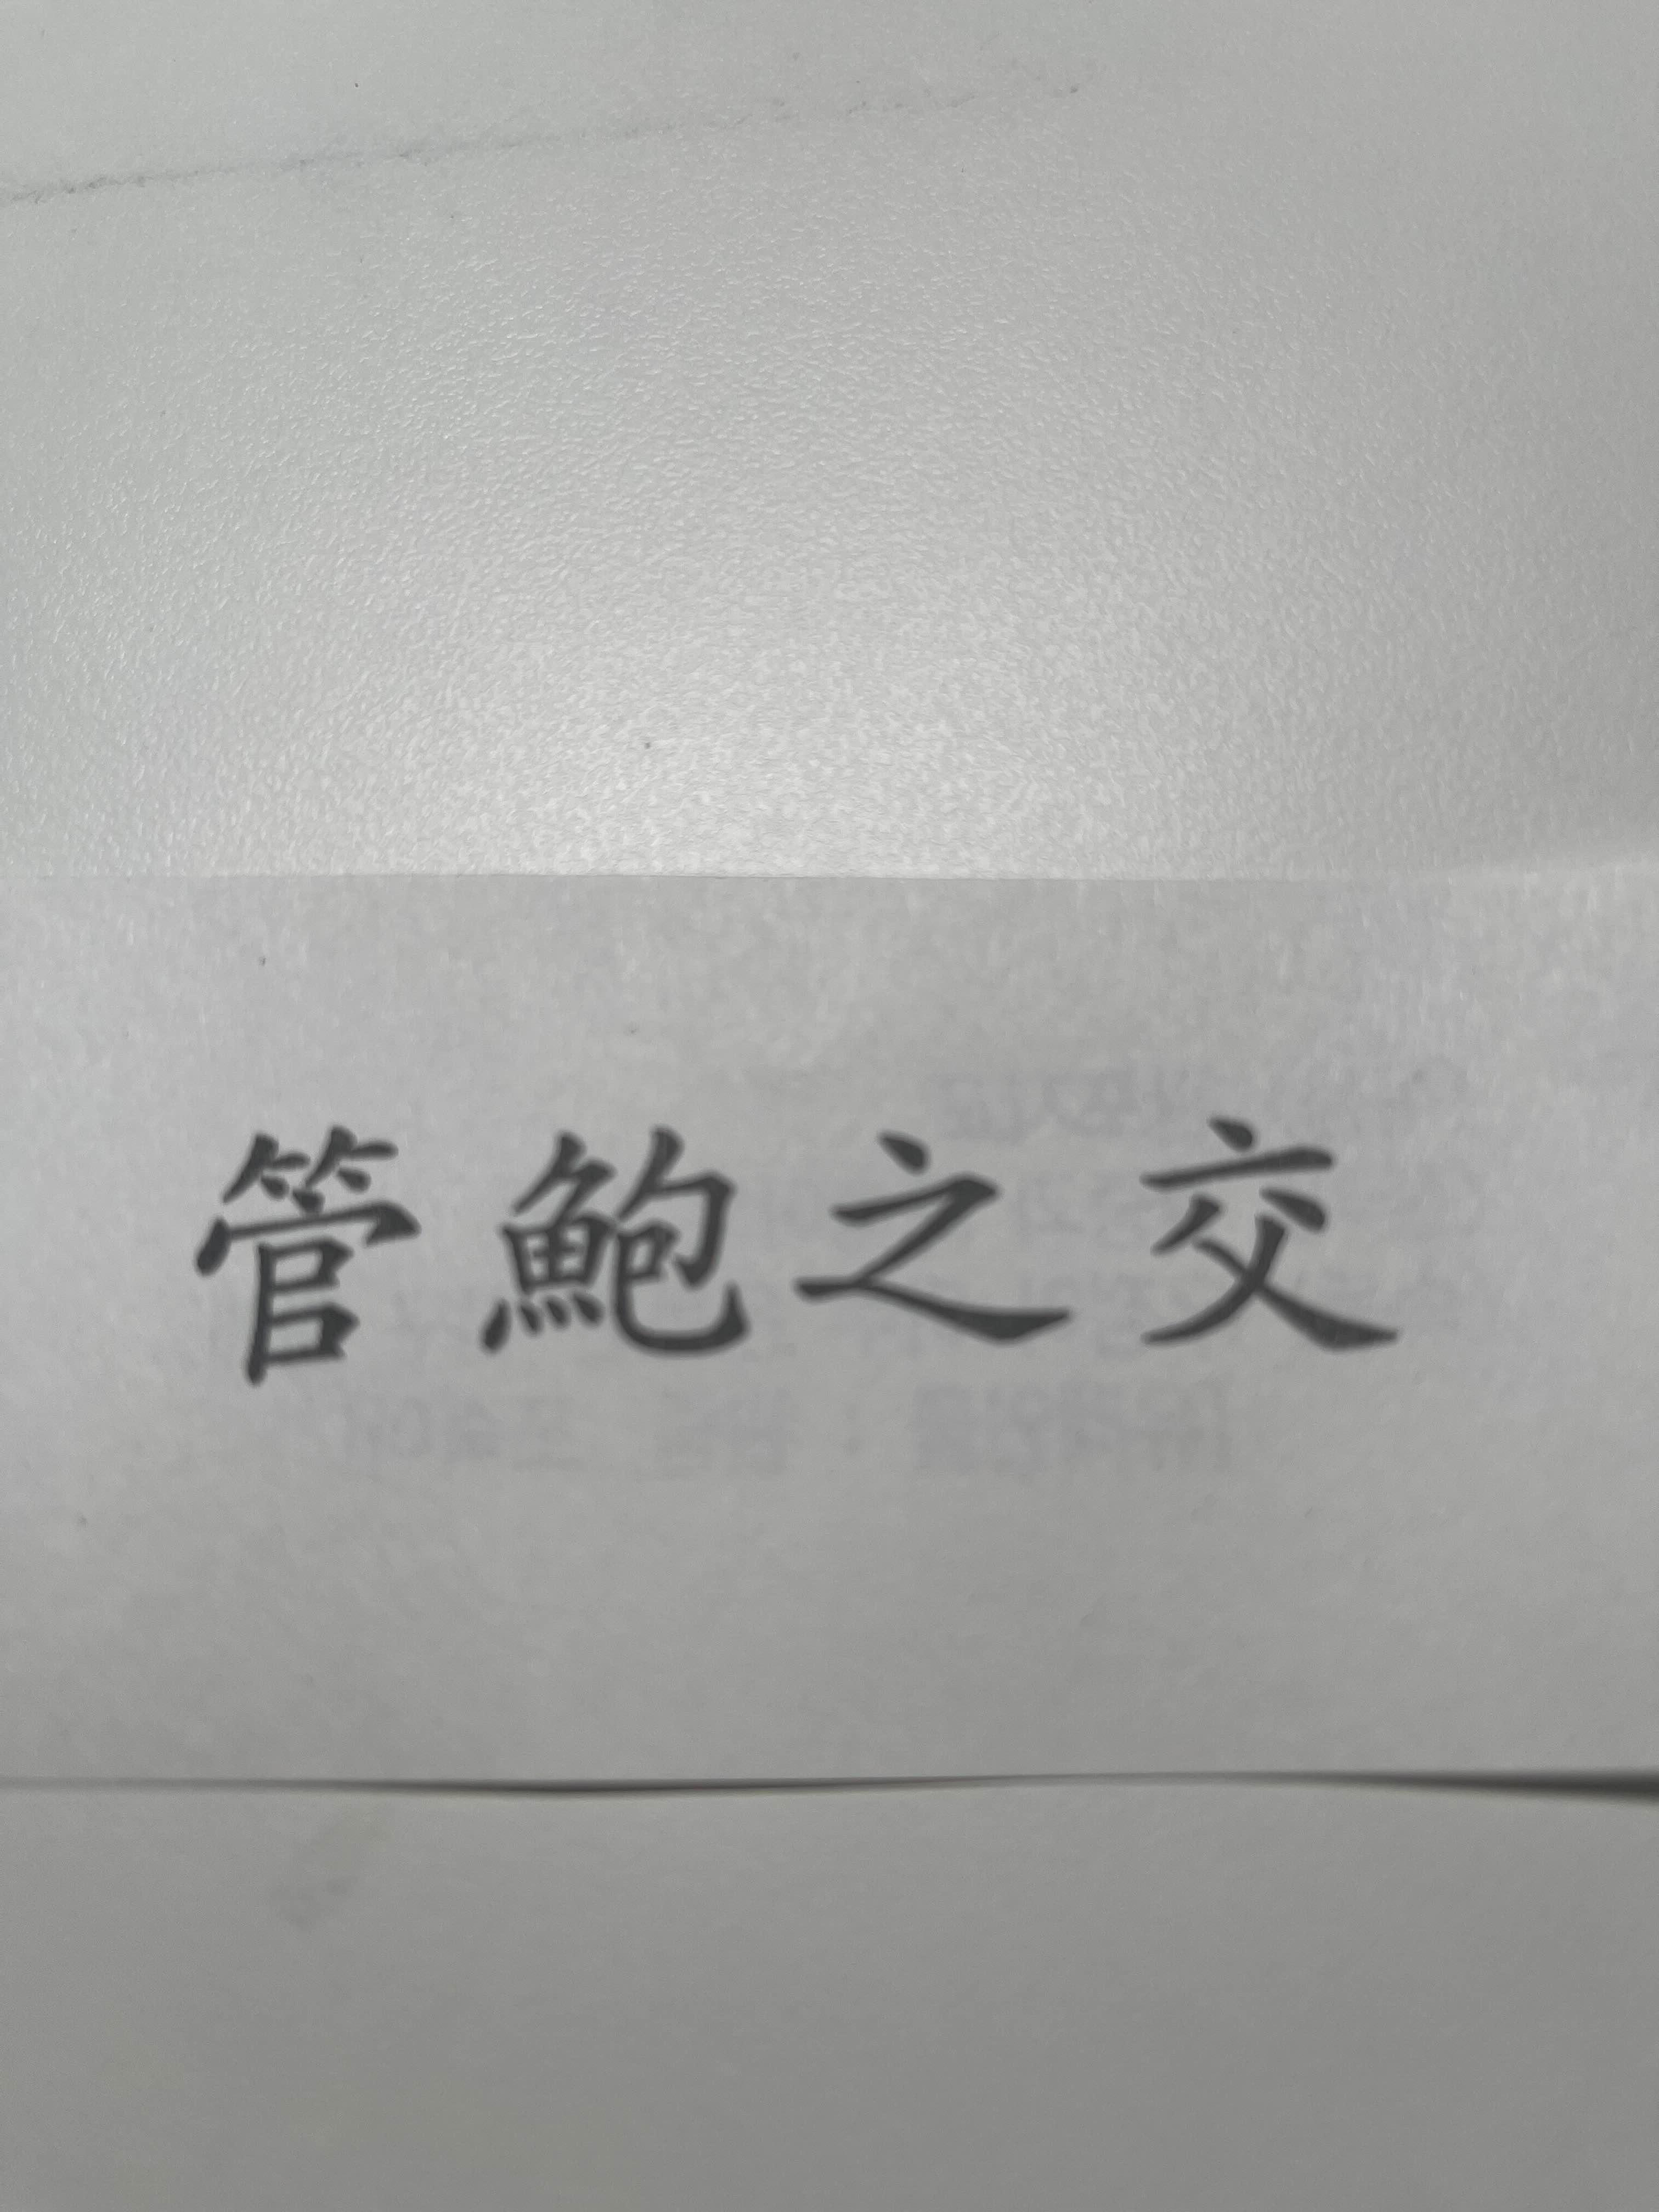 管鮑之交